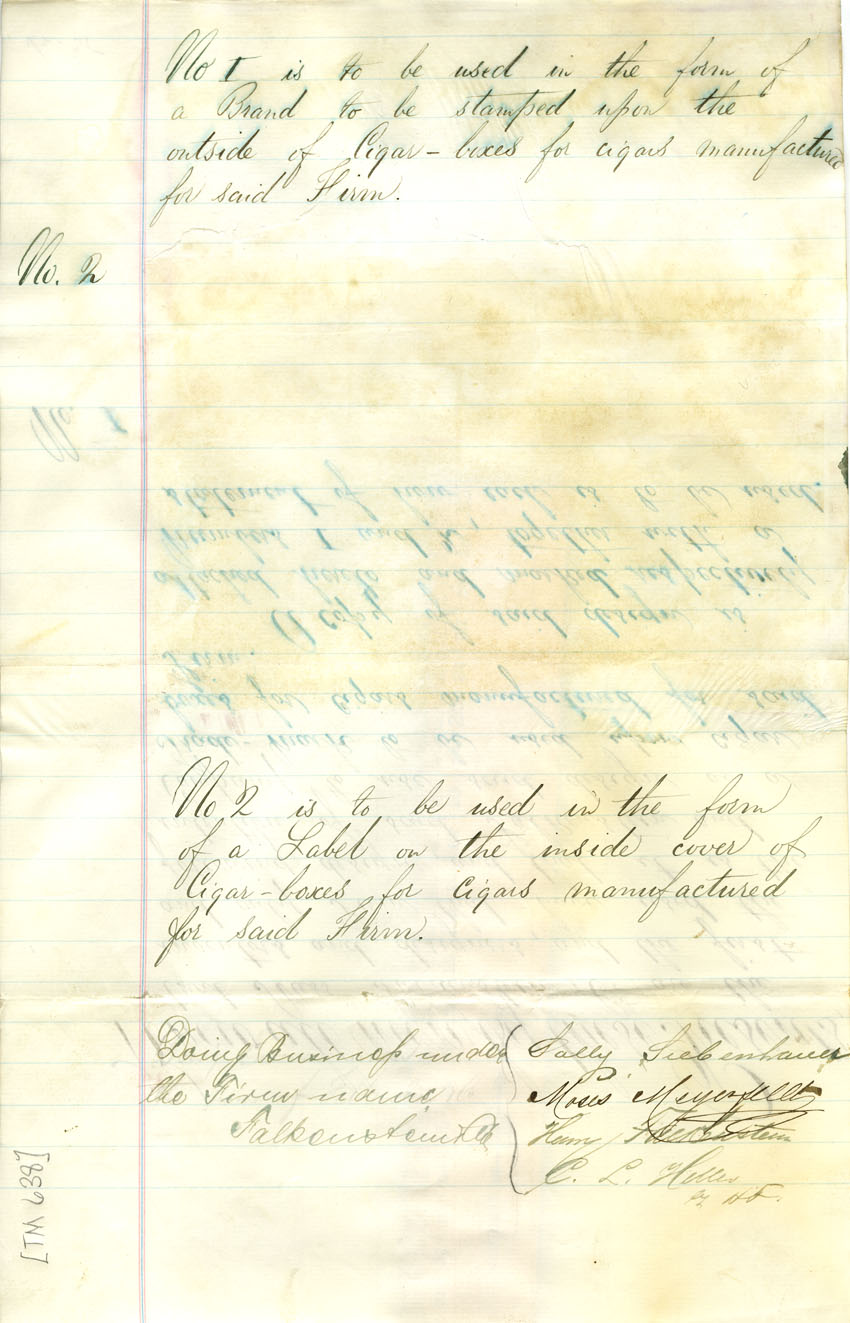 No 1 is to be used in the form of
a Brand to be stamped upon the
outside of Cigar-boxes for cigars manufactured
for said Firm.
No. 2
No 2 is to be used in the form
of a Label on the inside cover of
Cigar-boxes for cigars manufactured
for said Firm.
Doing Business under
the Firm name
Falkenstein & Co
Sally Siebenhauer
Moses Meyerfeldt
Henry Falkenstein
C. L. Heller
[TM 638]